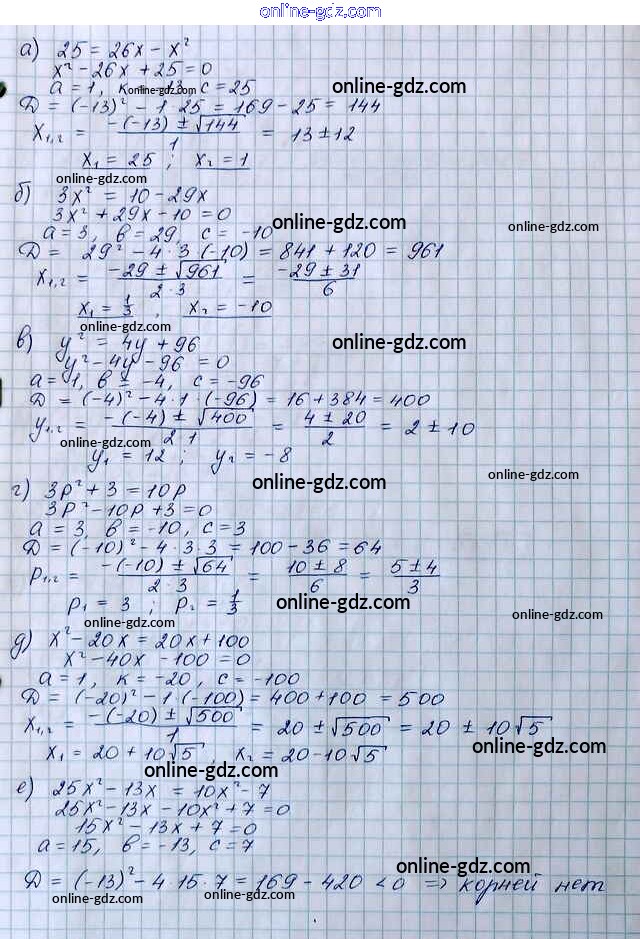 online-gdz.com
а) 25 = 26x - x²
x² - 26x + 25 = 0
a = 1, к = -13, c = 25
online-gdz.com
online-gdz.com
D = (-13)² - 1·25 = 169 - 25 = 144
x₁,₂ = (-(-13) ± √144)/1 = 13 ± 12
online-gdz.com
x₁ = 25 ; x₂ = 1
online-gdz.com
б) 3x² = 10 - 29x
online-gdz.com
3x² + 29x - 10 = 0
online-gdz.com
a = 3, в = 29, c = -10
D = 29² - 4·3·(-10) = 841 + 120 = 961
x₁,₂ = (-29 ± √961)/(2·3) = (-29 ± 31)/6
online-gdz.com
x₁ = 1/3, x₂ = -10
online-gdz.com
в) y² = 4y + 96
online-gdz.com
y² - 4y - 96 = 0
a = 1, в = -4, c = -96
D = (-4)² - 4·1·(-96) = 16 + 384 = 400
y₁,₂ = (-(-4) ± √400)/(2·1) = (4 ± 20)/2 = 2 ± 10
online-gdz.com
y₁ = 12 ; y₂ = -8
online-gdz.com
online-gdz.com
г) 3p² + 3 = 10p
3p² - 10p + 3 = 0
a = 3, в = -10, c = 3
D = (-10)² - 4·3·3 = 100 - 36 = 64
p₁,₂ = (-(-10) ± √64)/(2·3) = (10 ± 8)/6 = (5 ± 4)/3
p₁ = 3 ; p₂ = 1/3
online-gdz.com
online-gdz.com
online-gdz.com
д) x² - 20x = 20x + 100
x² - 40x - 100 = 0
a = 1, к = -20, c = -100
D = (-20)² - 1·(-100) = 400 + 100 = 500
x₁,₂ = (-(-20) ± √500)/1 = 20 ± √500 = 20 ± 10√5
online-gdz.com
x₁ = 20 + 10√5, x₂ = 20 - 10√5
online-gdz.com
е) 25x² - 13x = 10x² - 7
25x² - 13x - 10x² + 7 = 0
15x² - 13x + 7 = 0
a = 15, в = -13, c = 7
online-gdz.com
D = (-13)² - 4·15·7 = 169 - 420 < 0 ⇒ корней нет
online-gdz.com
online-gdz.com